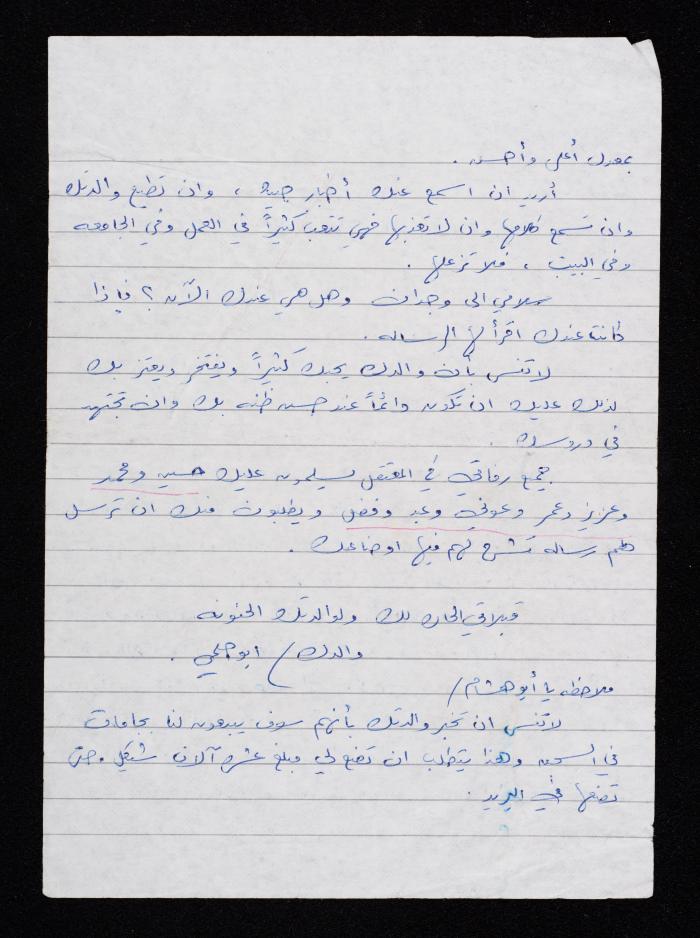 بمعدل أعلى وأحسن .
أريد ان اسمع عنك أخبار جيده ، وان تطيع والدتك
وان تسمع كلامها وان لا تعذبها فهي تتعب كثيراً في العمل وفي الجامعه
وفي البيت ، فلا تزعلها .
سلامي الى وجدان وهل هي عندك الآن ؟ فإذا
كانت عندك اقرأ لها الرساله .
لا تنس بأن والدك يحبك كثيراً ويفتخر ويعتز بك
لذلك عليك ان تكون دائماً عند حسن ظنه بك وان تجتهد
في دروسك .
جميع رفاقي في المعتقل يسلمون عليك حسين ومحمد
وعزيز وعمر وعوني وعبد وفضل ويطلبون منك ان ترسل
لهم رساله تشرح لهم فيها اوضاعك .
قبلاتي الحاره لك ولوالدتك الحنونه
والدك / ابو حلمي .
ملاحظه يا أبو هشام /
لا تنس ان تخبر والدتك بأنهم سوف
في السجن وهذا يتطلب ان تضع لي مبلغ عشرة آلاف شيكل
تضعها في البريد .